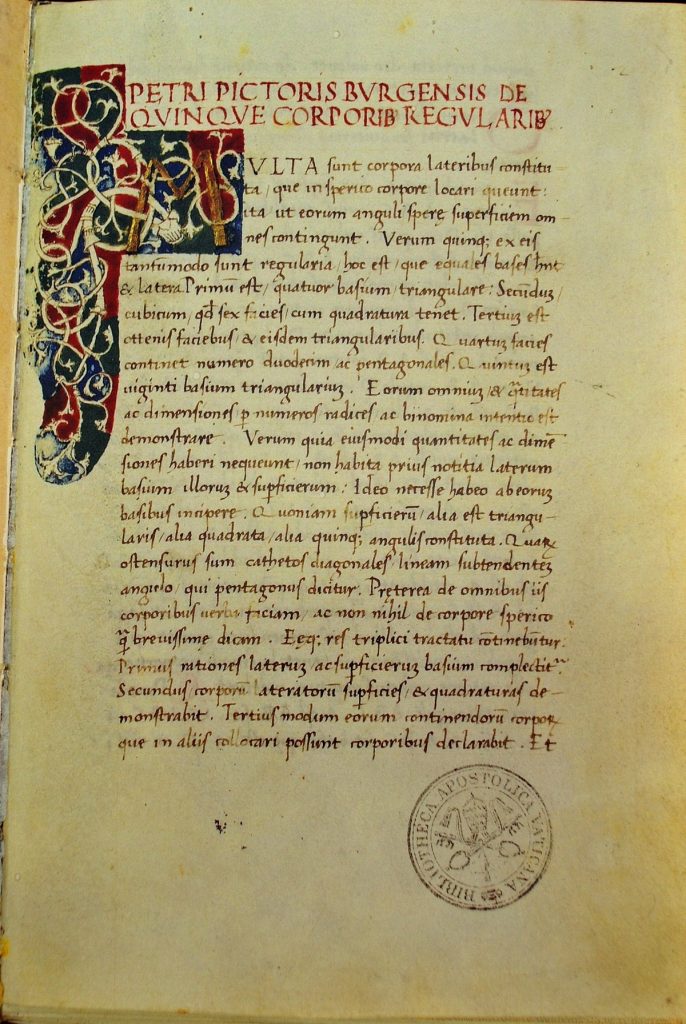 PETRI PICTORIS BVRGENSIS DE
QVINQVE CORPORIB REGVLARIB
MVLTA sunt corpora lateribus constitu–
ta, que in sperico corpore locari queunt:
ita ut eorum anguli sperę superficiem om–
nes contingunt. Verum quinq; ex eis
tantūmodo sunt regularia, hoc est, que equales bases hn̄t
& latera. Primū est, quatuor basium, triangulare: Secūduz,
cubicum, qd sex facies, cum quadratura tenet. Tertiuz est
ottenis faciebus, & eisdem triangularibus. Quartuz facies
continet numero duodecim ac pentagonales. Quintuz est
viginti basium triangulariuz. Eorum omniuz, & q̄titates
ac dimensiones p numeros radices ac binomina intentio est
demonstrare. Verum quia eiusmodi quantitates ac dimē
siones haberi nequeunt, non habita prius notitia laterum
basium illoruz & supficierum: Ideo necesse habeo ab eoruz
basibus incipere. Quoniam supficierū, alia est triangu–
laris, alia quadrata, alia quinq; angulis constituta. Quaꝝ
ostensurus sum cathetos diagonales, lineam subtendentez
angulo, qui pentagonus dicitur. Pręterea de omnibus iis
corporibus verba faciam, ac non nihil de corpore sperico
q̄ brevissime dicam. Eęq; res triplici tractatu cōtinebuntur.
Primus rationes lateruz ac supficieruz basium complectit
Secundus, corporū lateratorū supficies, & quadraturas de–
monstrabit. Tertius modum eorum continendorū corpoꝝ
que in aliis collocari possunt corporibus declarabit. Et
BIBLIOTHECA APOSTOLICA VATICANA